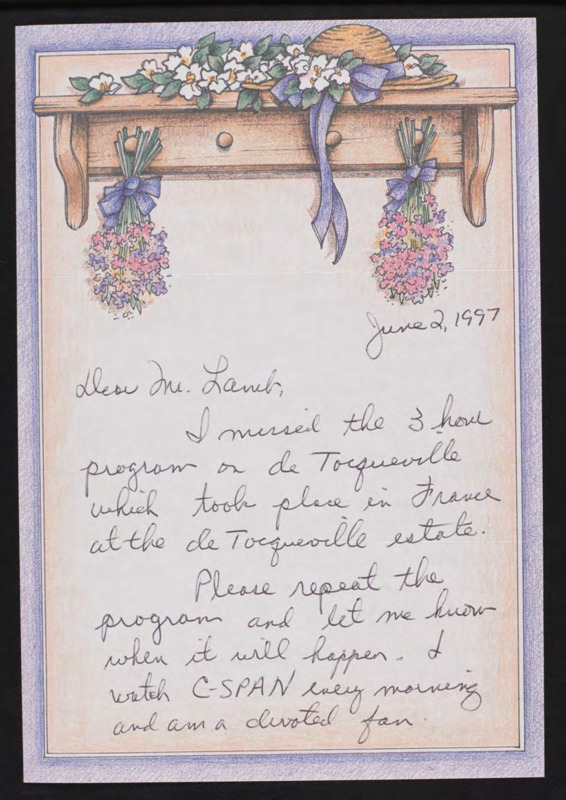 June 2, 1997
Dear Mr. Lamb,
I missed the 3 hour
program on de Tocqueville
which took place in France
at the de Tocqueville estate.
Please repeat the
program and let me know
when it will happen. I
watch C-SPAN every morning
and am a devoted fan.